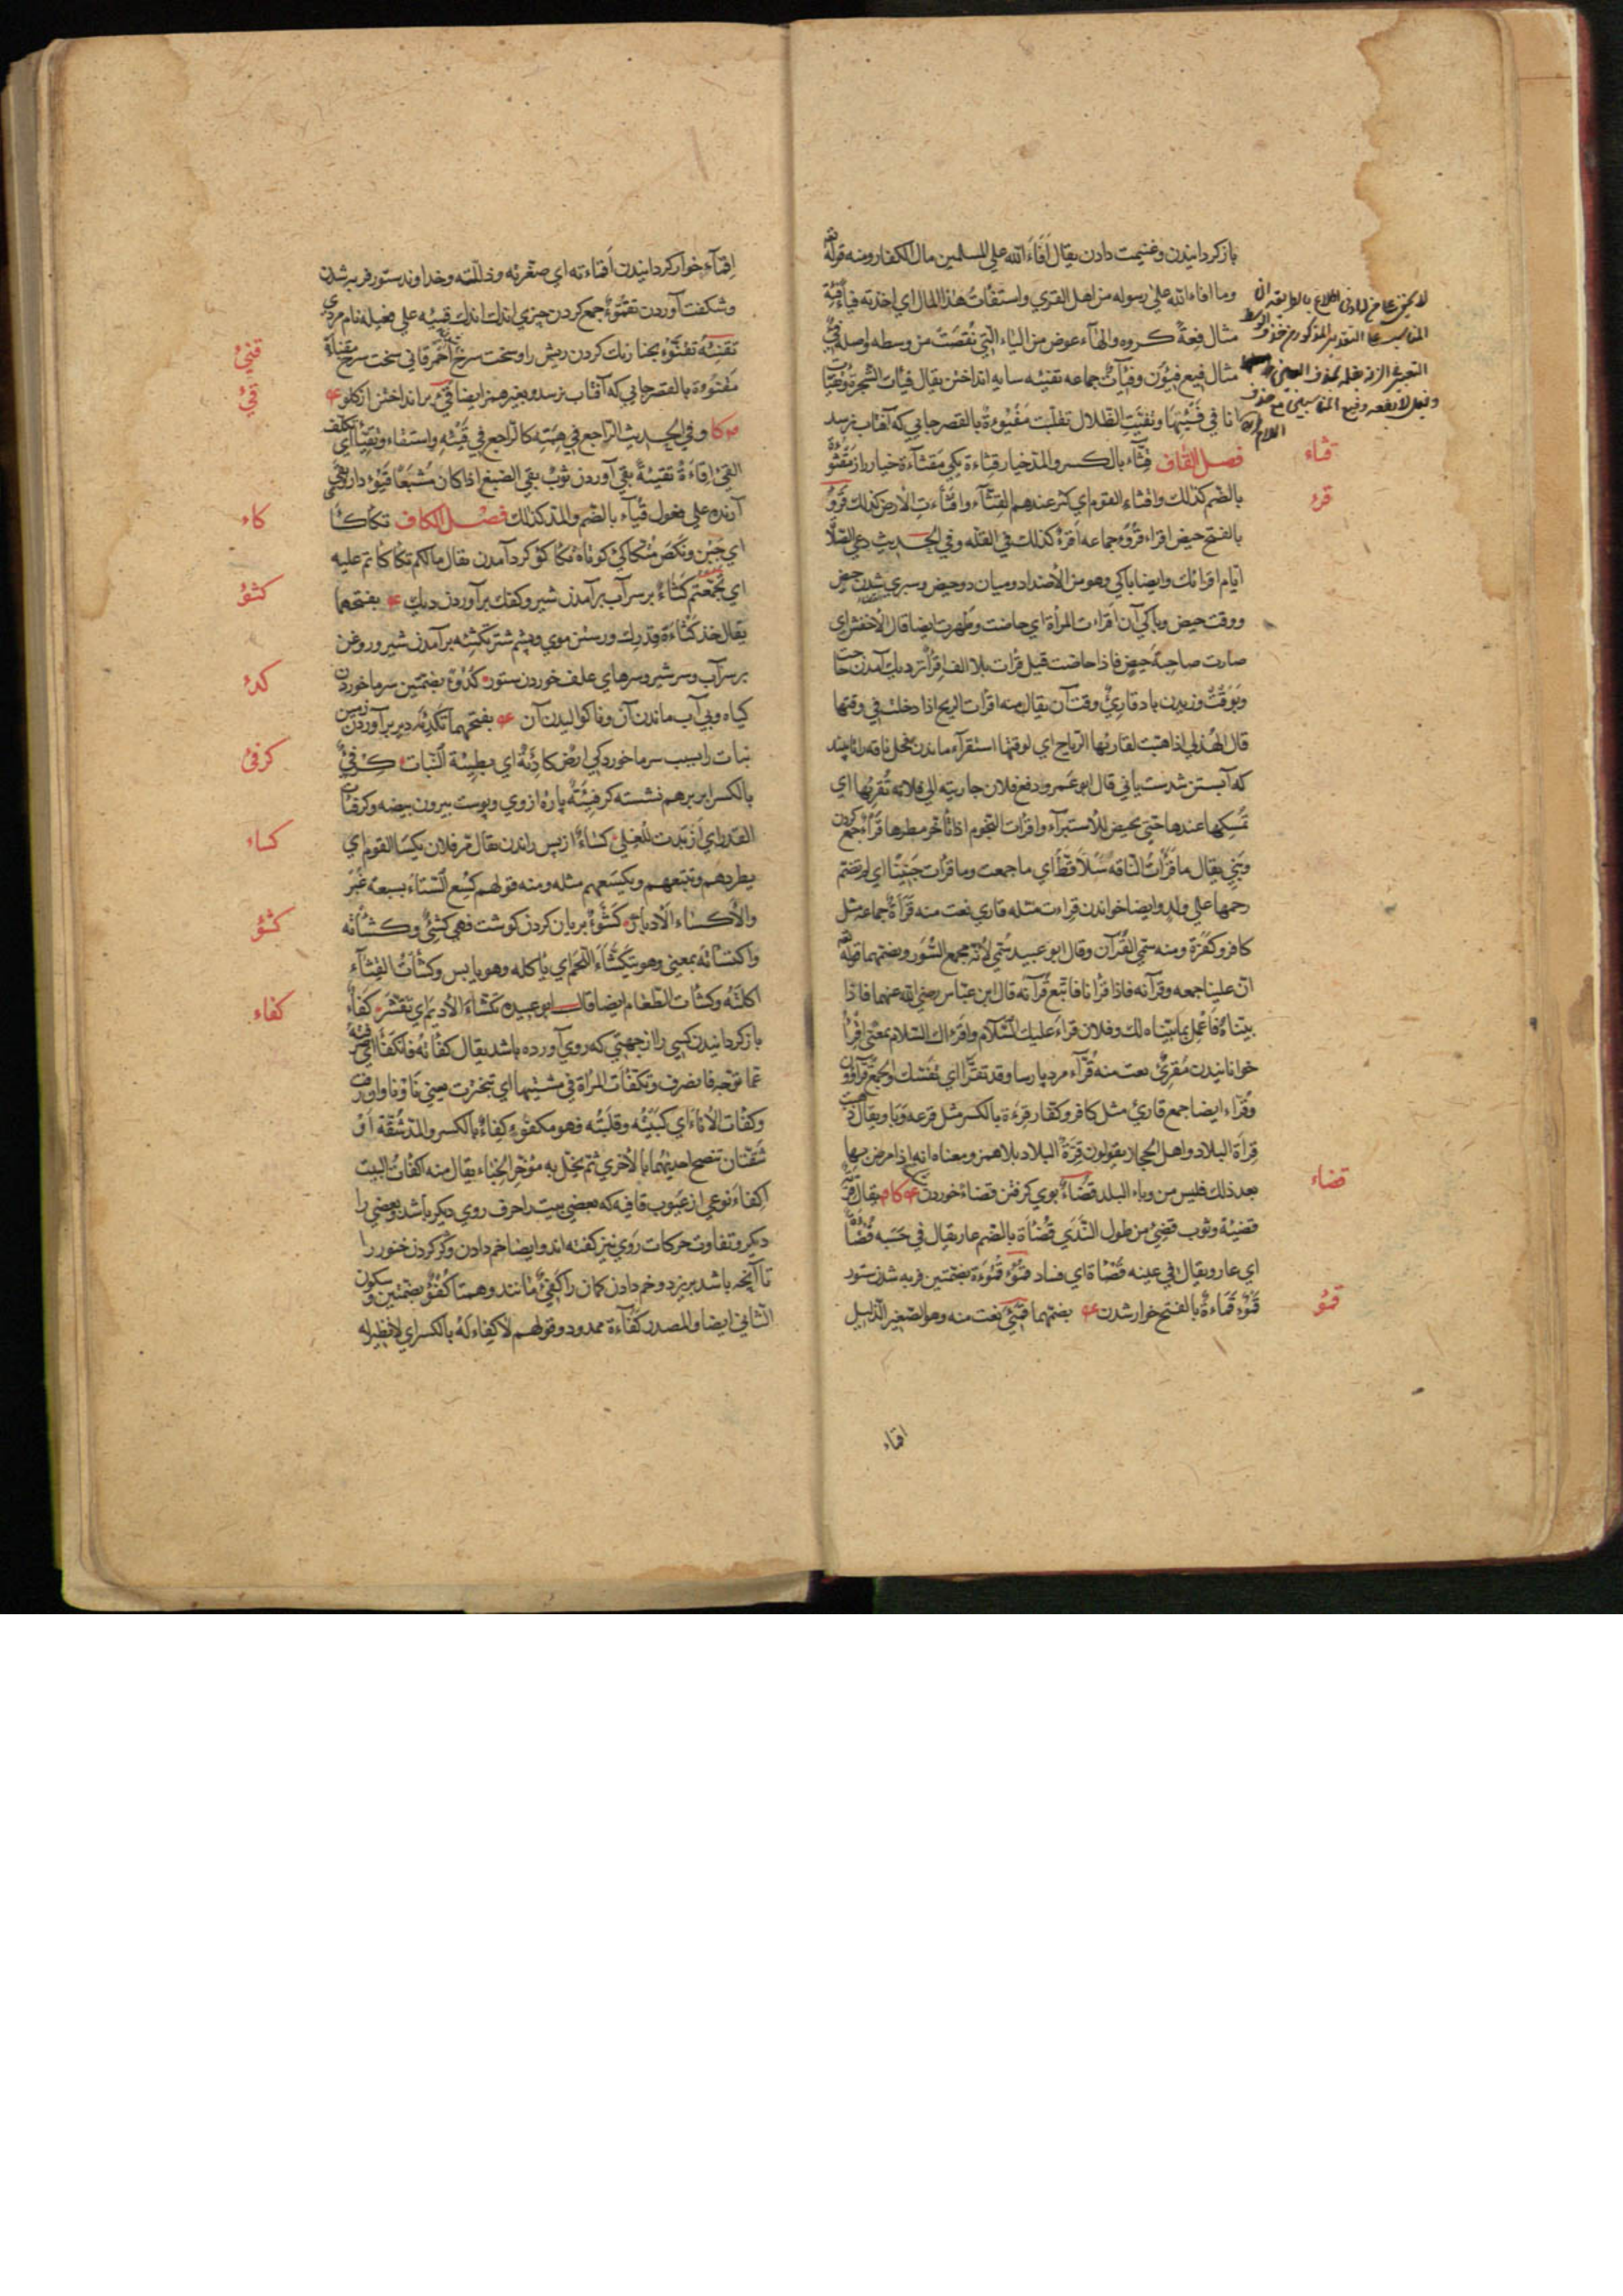 باز كردانيدن وغنيمت دادن يقال اَفَاءَ الله علي المسلمين مال الكفار ومنه قوله تع
وما افاء الله علي رسوله من اهل القري واستفأتُ هذا المال اي اخذته فياً فِئَة
مثال فِعَةٌ كروه والهآء عوض من الياء الّتي نُقصَتْ من وسطه اوصله فِيٌ
مثال فيع فِئُون وفِئَاتٌ جماعه تفيئه سايه انداختن يقال فيّأت الشجرة وتفيّأت
انا في فَيْئِها وتفيّت الظلال تقلّبت مَفْيُوءةٌ بالقصر جايي كه آفتاب نرسد
قثاء
فصل القاف قِثَّاء بالكسر والمدّ خيار قثاءة يكي مَقثأة خيار زار مَقْثُوَّةٌ
بالضم كذلك واقثاء القوم اي كثر عندهم القِثّآء واقثأت الارض كذلك قَرْوٌ
قرء
بالفتح حيض اقراء قروءٌ جماعه اَقرءٌ كذلك في القله وفي الحديث دعي الصلاة
ايام اقرائك وايضا پاكي وهو من الاضداد وميان دو حيض وسپري شدن حيض
ووقت حيض وپاكي آن اقراءت المرأة اي حاضت وطهرت ايضا قال الاخفش اي
صارت صاحبة حيضٍ فاذا حاضت قيل قرأت بلا الف اقرأ نزديك آمدن حاجت
وبَوَقْتٌ وزيدن باد قاريءٌ وقت آن يقال منه اقرأت الريح اذا دخلت في وقتها
قال الهُذلي اذا هبّت لقاريها الرياح اي لوقتها استقرآء ماندن فحل ناقه را تا بيند
كه آبستن شدست يا ني قال ابو عَمرو دفع فلان جاريته الي فلانة تُقرِئها اي
تمسكها عندها حتي تحيض للاستبرآء واقرأت النجوم اذا تأخر مطرها قَرْءٌ جمع كردن
وبَچّي يقال ما قَرأتِ النّاقه سَلاً قَطّ اي ما جمعت وما قرأت جَنِينًا اي لم تضم
رحمها علي ولد وايضا خواندن قراءت مثله قاري نعت منه قَرَأةٌ جماعه مثل
كافر وكَفَرَة ومنه سمّي القُرآن وقال ابو عبيد سُمّي لأنّه يجمع السُّوَر ويضمها قوله تع
انّ علينا جمعه وقرآنه فاذا قرأنا فاتّبع قرآنه قال ابن عبّاس رضي الله عنهما فاذا
بيّناهُ فاعمل بما بيّناه لك وفلان قرأ عليك السّلام واقرءاك السّلام بمعنيً اقرأ
خوانانيدن مُقرئٌ نعت منه قُرّآء مرد پارسا وقد تقرّأ اي تنسّك والجمع قرآؤون
وقُرّاء ايضا جمع قارئ مثل كافر وكفّار قِرءَة بالكسر مثل قرعه وَبا ويقال ذهبت
قِرأة البلاد واهل الحجاز يقولون قِرَةُ البلاد بلا همز ومعناه انه اذا مرض بها
قضاء
بعد ذلك فليس من وباء البلد قَضَاءٌ بوي كرفتن قضاءٌ خوردن يقال قربةٌ
قضئة وثوب قضئ من طول النَّدَي قُضْأة بالضم عار يقال في حَسَبه قُضأةٌ
اي عار ويقال في عينه قُضأة اي فساد قمُوْءٌ قَمُوْءة بضمّتين فربه شدن ستور
قمؤ
قَمْوْءٌ قَمَاءةٌ بالفتح خوار شدن بضمّهما قَمِيْءٌ نعت منه وهو الصغير الذّليل
اقماء
اِقمآء خوار كردانيدن اَقماءته اي صغّرته وذلّلته وخداوند ستور فربه شدن
وشكفت آوردن تقمّوءٌ جمع كردن چيزي اندك اندك قميئه علي فعيله نام مردي
قنئ
تقنِئَهٌ تقنّوءٌ بحنا رنك كردن ريش را وسخت سرخ اَحْمَر قاني سخت سرخ مقنأة
قيئ
مَقنُوءة بالقصر جايي كه آفتاب نرسد وبغير همز ايضا قيءٌ بر انداختن از كلو
وفي الحديث الرّاجع في هِبَته كالراجع في قَيْئِه واستقاء وتَقَيّأ اي تكلّف
القَيءَ اِقاءَةٌ تقيئةٌ بقي آوردن ثوبٌ يقيء الصبغ اذا كان مُشبَعًا قَيُوْءٌ داروي قي
كاء
آرنده علي فعول قُيآء بالضم والمدّ كذلك فصل الكاف تكأكأ
اي جَبُن ونَكَصَ متكأكئ كوتاه تكأكؤ كرد آمدن يقال ما لكم تكأكأتم عليه
كثؤ
اي تجمّعتم كَثَاءٌ بر سر آب برآمدن شير وكفك برآوردن ديك بفتحهما
يقال خذ كُثأةَ قِدْرِك ورستن موي وپشم شتر تكثئه برآمدن شير وروغن
كدء
بر سر آب وسر شير وسرهاي علف خوردن ستور كُدُوْءٌ بضمّتين سرما خوردن
كياه وبي آب ماندن آن وناكواليدن آن بفتحهما تكدئه دير برآوردن زمين
كرفئ
نبات را بسبب سرما خوردكي ارضٌ كادِئةٌ اي بطيئة النّبات كِرفئٌ
بالكسر ابر برهم نشسته كرفِئَةٌ پاره از وي وپوست بيرون بيضه وكرفأت
كساء
القدر اي اَزبَدت للغلي كسْاءٌ از پس راندن يقال مرّ فلان يكسأ القوم اي
يطردهم ويتبعهم ويكسَعهم مثله ومنه قولهم كُسِع الشتاءُ بسبعة غُبْرٍ
كشؤ
والأكساء الأدبار كَشْوءٌ بريان كردن كوشت فهي كشئٌ وكشأته
واكشأته بمعني وهو يتكشّاءَ اللحم اي يأكله وهو يابس وكشأتُ القِثّآء
كفاء
اكلتُه وكشأت الطعام ايضا قال ابو عبيده تكشّاءَ الاديم اي تقشّر كَفاءٌ
باز كردانيدن كسي را از جهتي كه روي آورده باشد يقال كفأتهُ فانكفأ اي صرفته
عما توجه فانصرف وتكفّأت المرأة في مشيتها اي تبخترت يعني تاو ناو آورد
وكفأت الأناء اي كَبَبتُه وقلبتُه فهو مكفوْءٍ كِفاءٌ بالكسر والمدّ شُقّة اَوْ
شُقّتان تنصح احديهما بالأخري ثم يخلّ به مؤخّر الخِباء يقال منه اكفأتُ البيت
اكفاءَ نوعي از عيوب قافيه كه بعضي بيت را حرف روي ديكر باشد وبعضي را
ديكر وتفاوت حركات رَوي نيز كفته اند وايضا خم دادن وكژ كردن خنور را
تا آنچه باشد بريزد وخم دادن كمان را كَفئٌ مانند وهمتا كُفُؤٌ بضمّتين وسكون
الثاني ايضا والمصدر كَفَآءَة ممدود وقولهم لا كِفاءَ لهُ بالكسر اي لا نظير له